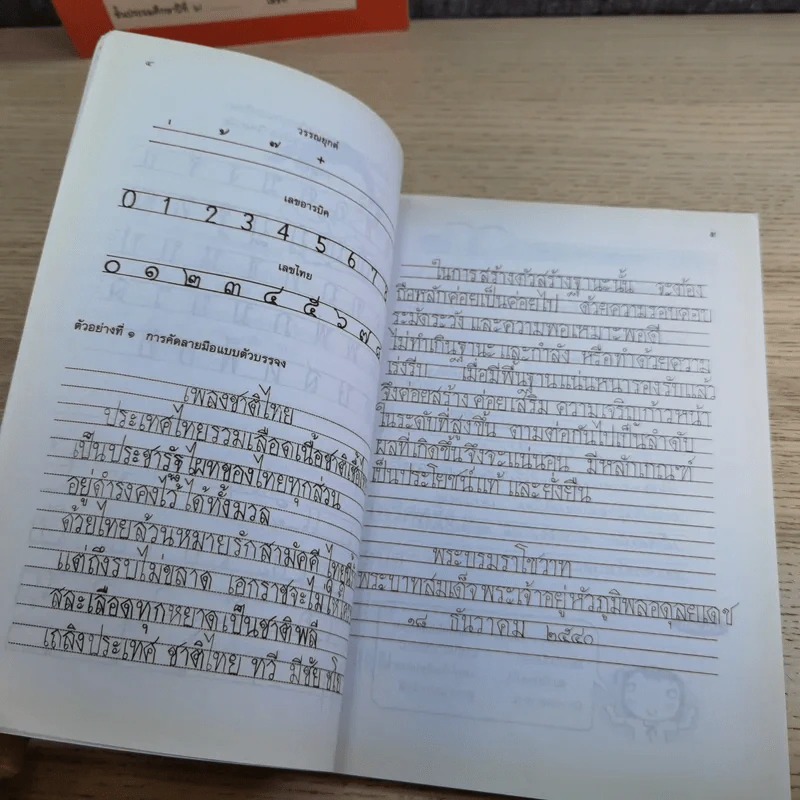 ชั้นประถมศึกษาปีที่ ๖/
๔
วรรณยุกต์
่ ้ ๊ ๋
เลขอารบิค
0 1 2 3 4 5 6 7
เลขไทย
๐ ๑ ๒ ๓ ๔ ๕ ๖ ๗
ตัวอย่างที่ ๑ การคัดลายมือแบบตัวบรรจง
เพลงชาติไทย
ประเทศไทยรวมเลือดเนื้อชาติเชื้อ
เป็นประชารัฐ ไผทของไทยทุกส่วน
อยู่ดำรงคงไว้ ได้ทั้งมวล
ด้วยไทยล้วนหมาย รักสามัคคี
แต่ถึงรบไม่ขลาด เอกราชจะไม่
สละเลือดทุกหยาดเป็นชาติพลี
เถลิงประเทศ ชาติไทย ทวี มีชัย
๕
ในการสร้างตัวสร้างฐานะนั้น จะต้อง
ถือหลักค่อยเป็นค่อยไป ด้วยความรอบคอบ
ระมัดระวัง และความพอเหมาะพอดี
ไม่ทำเกินฐานะ และกำลัง หรือทำด้วยความ
เร่งรีบ เมื่อมีพื้นฐานแน่นหนารองรับแล้ว
จึงค่อยสร้าง ค่อยเสริม ความเจริญก้าวหน้า
ในระดับที่สูงขึ้น ตามต่อกันไปเป็นลำดับ
ผลที่เกิดขึ้น จึงจะแน่นอน มีหลักเกณฑ์
เป็นประโยชน์แท้ และยั่งยืน
พระบรมราโชวาท
พระบาทสมเด็จพระเจ้าอยู่หัวภูมิพลอดุลยเดช
๑๘ ธันวาคม ๒๕๔๐